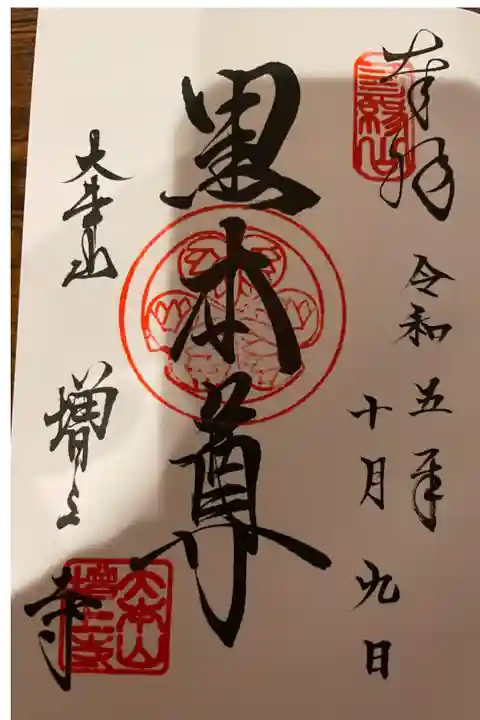 奉拝
三縁山
令和五年
十月九日
黒本尊
大本山
増上寺
大本山
増上寺